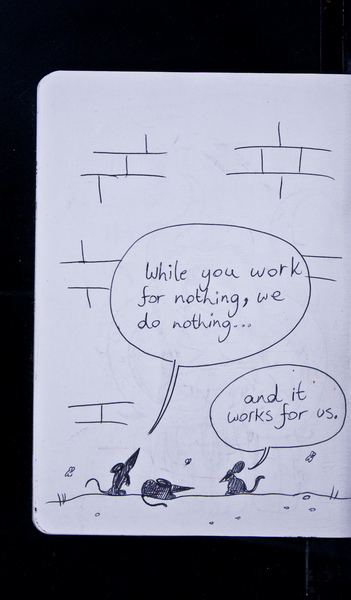 While you work
for nothing, we
do nothing...
and it
works for us.